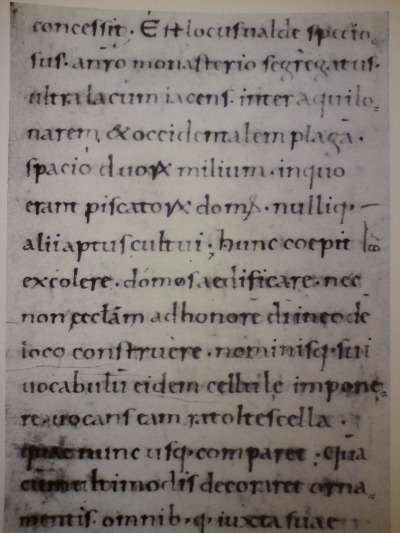 concessit. Est locus ualde specio
sus. a nr̄o monasterio segregatus.
ultra lacum iacens. inter aquilo
narem, & occidentalem plagā.
spacio duoꝝ milium. in quo
erant piscatoꝝ dom. nulliq.
alii aptus cultui; hunc coepit
excolere. domos aedificare. nec
non ecclā̄m ad honorē dn̄i in eo de
loco construere. nominisq. sui
uocabulū eidem cellulę imponę
re. uocans eam ratoltescella.
quae nunc usq. comparet. quā
cum ultimodis decoraret orna
mentis. omnib. q. iuxta suae